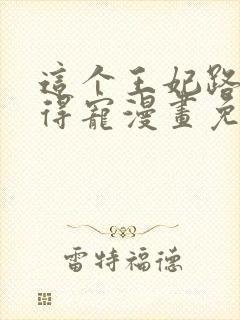 這个王妃路
得寵漫畫免
雷特福德